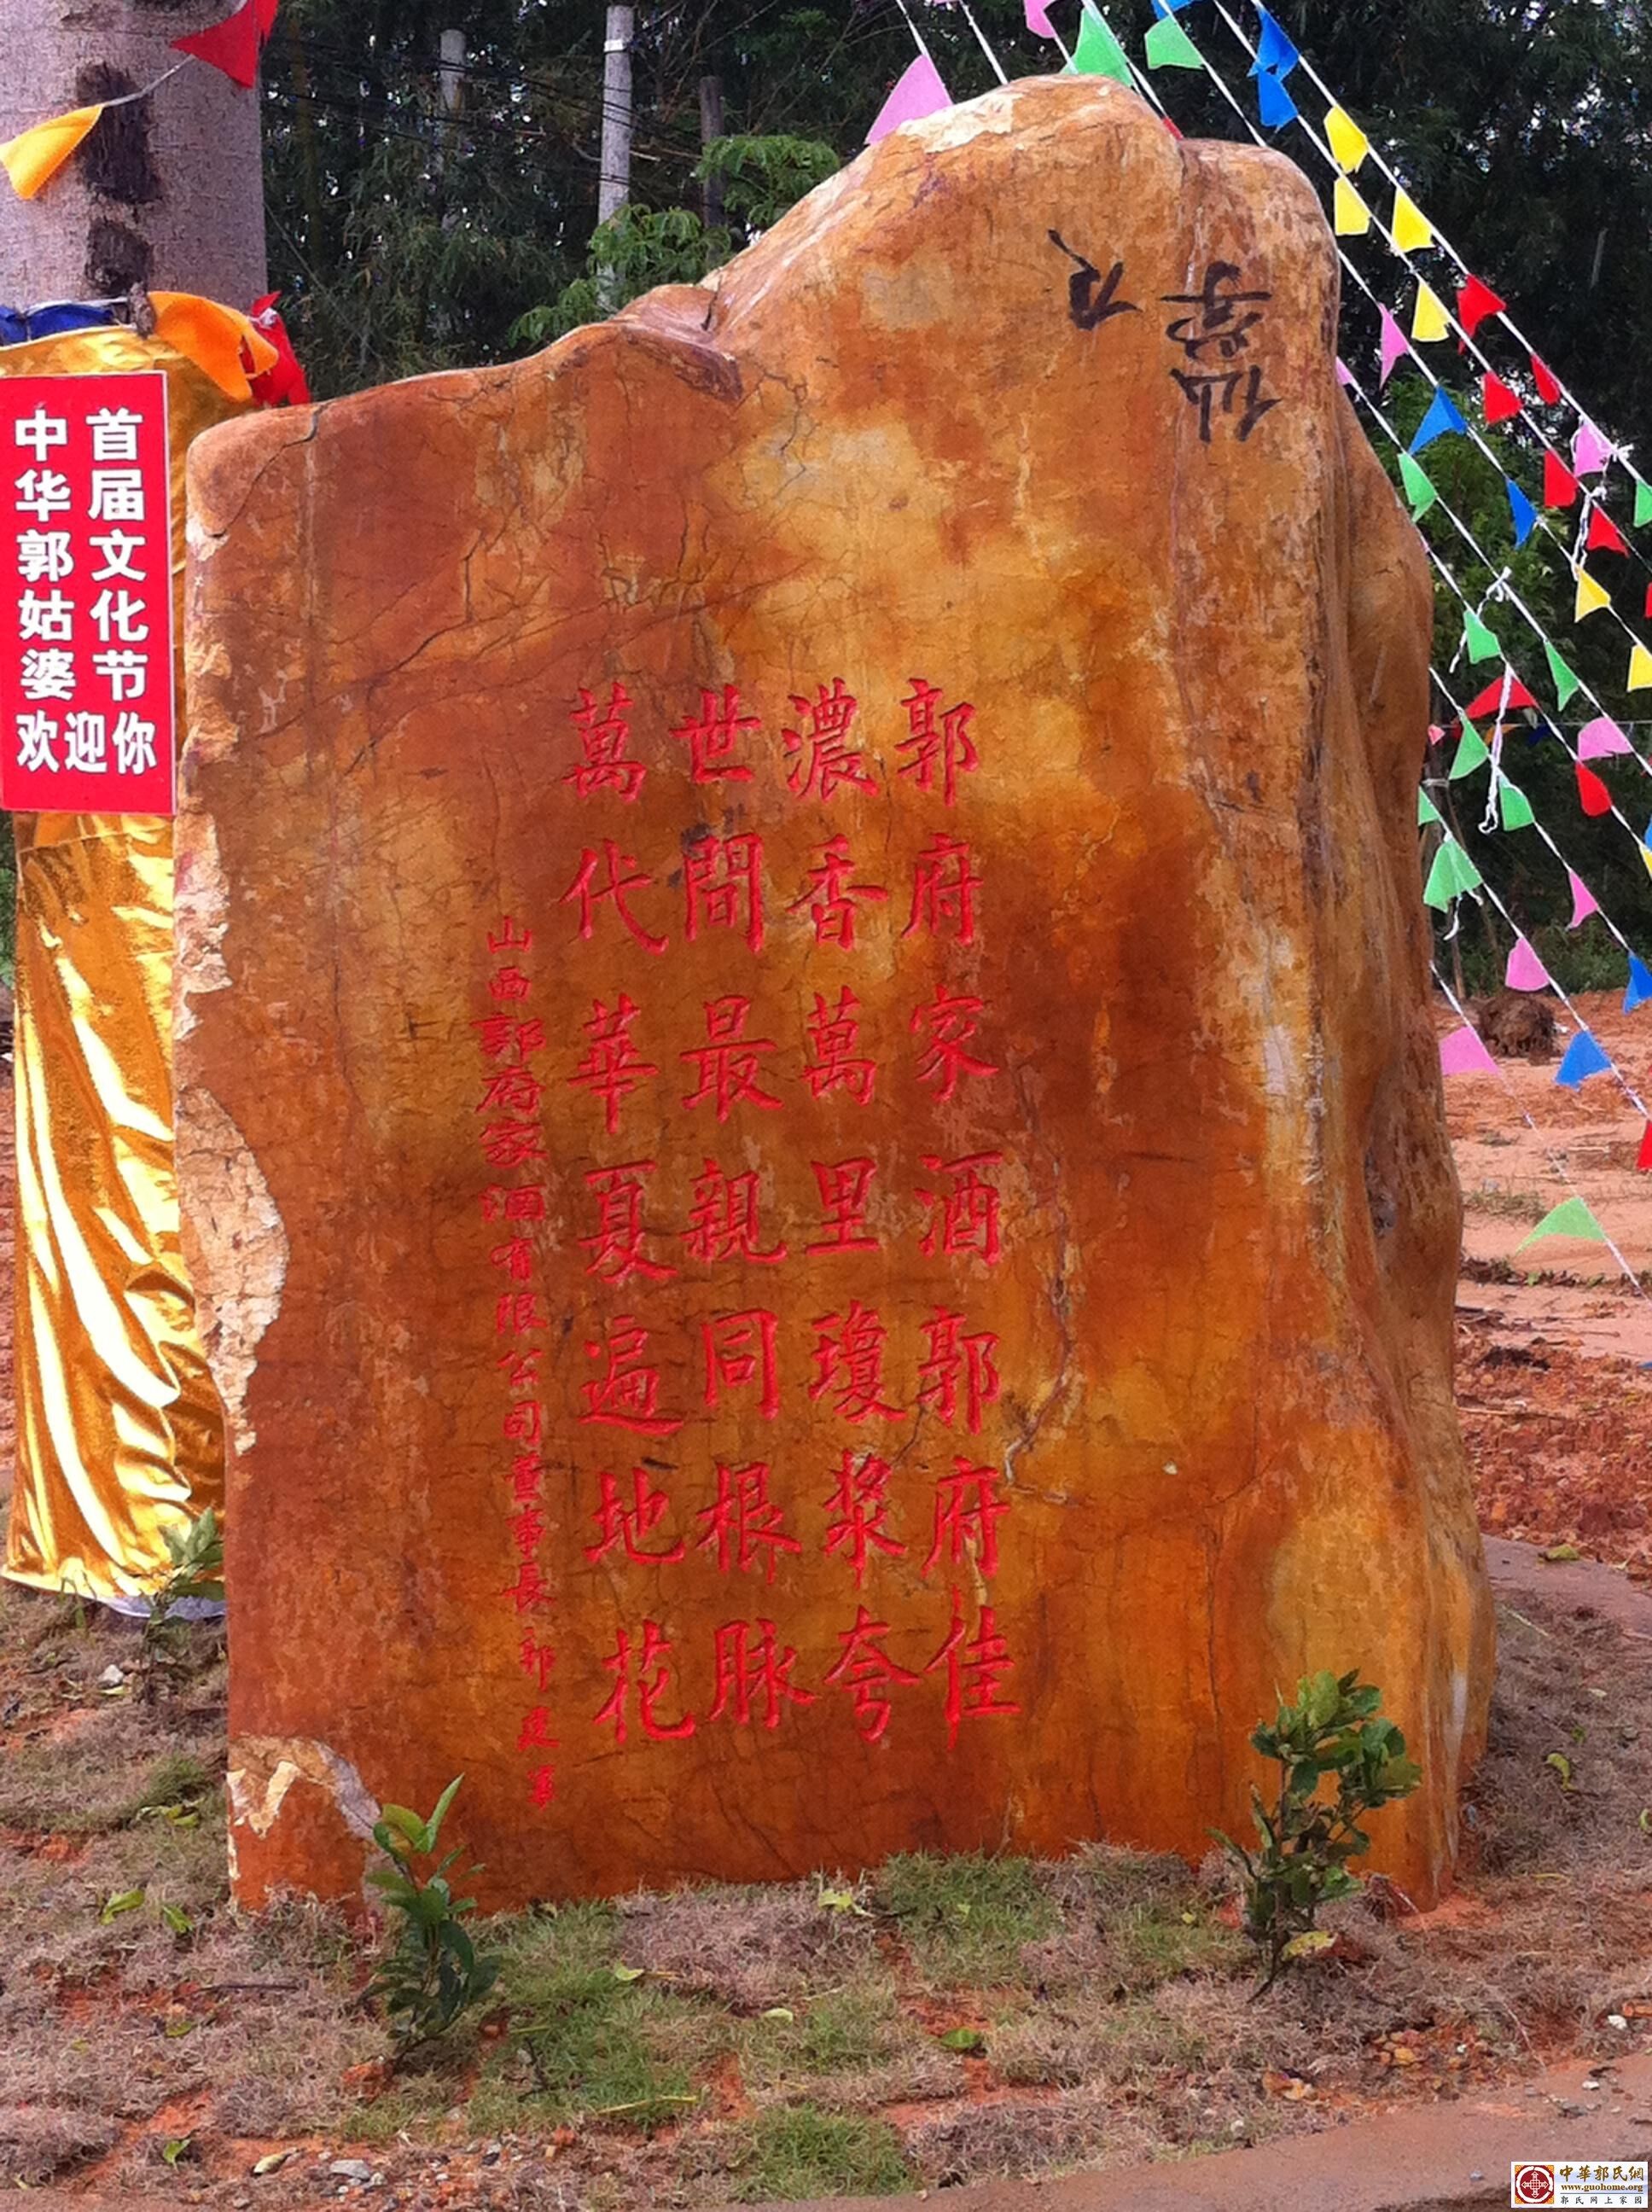 郭府家酒郭府佳
濃香萬里瓊漿夸
世間最親同根脉
萬代華夏遍地花
山西郭府家酒有限公司董事長郭建軍
首届文化节
中华郭姑婆
欢迎你
中華郭氏網
www.guohome.org
郭氏网上家园